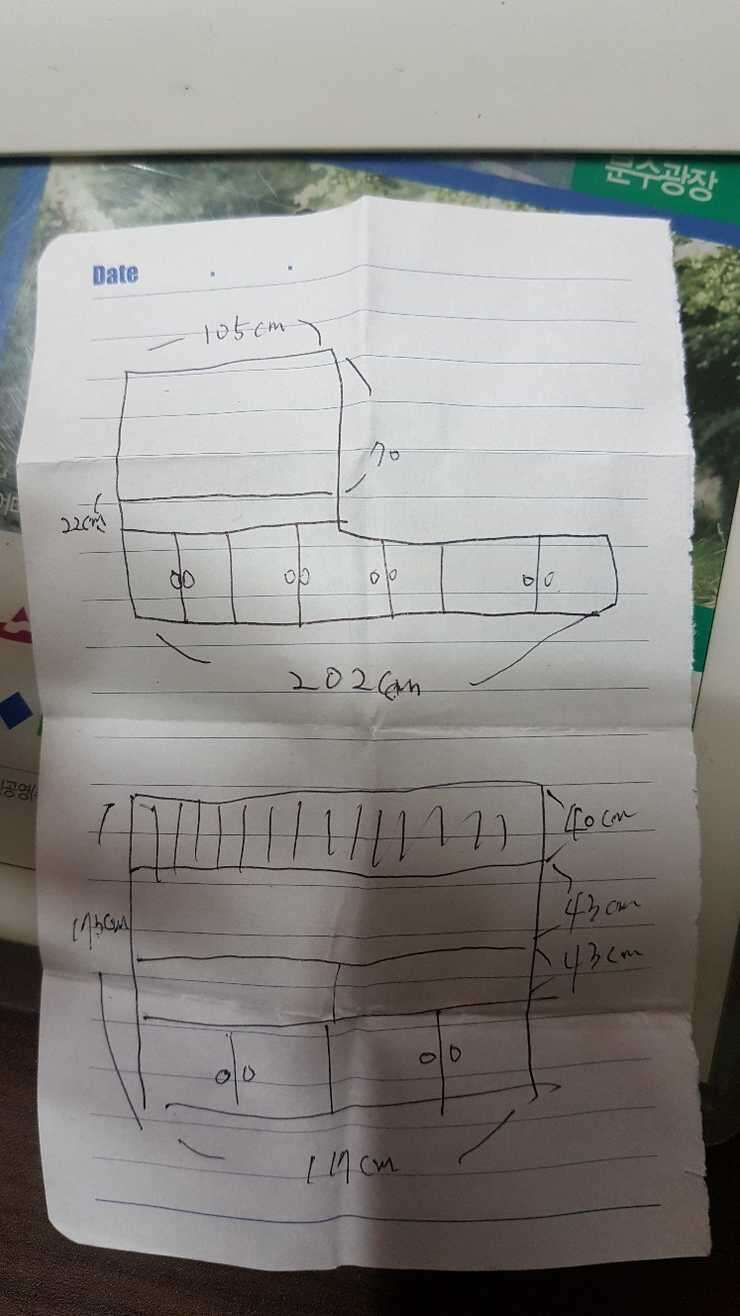 분수광장
Date
105cm
70
22cm
202cm
40cm
43cm
175cm
43cm
117cm